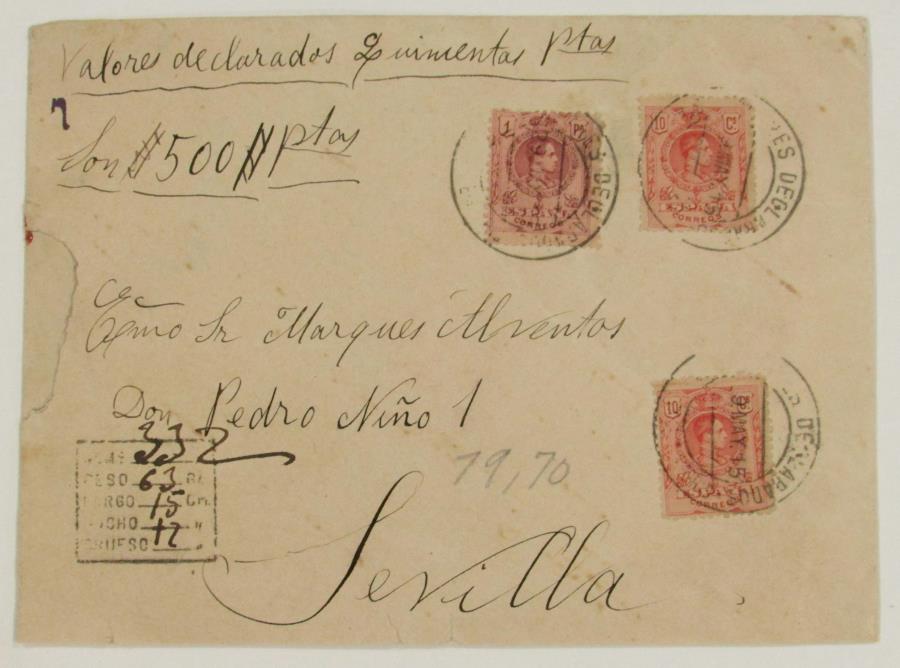 Valores declarados Quinientas Ptas
7
Son $500$ Ptas
1 Pta
CORREOS
10 Cs
CORREOS
ES DECLARA
Exmo Sr Marques Alventos
Don Pedro Niño 1
332
PESO 63 GR.
LARGO 15 CM.
ANCHO 12 "
GRUESO "
79,70
10 Cs
CORREOS
9 MAY 15
DECLARADOS
Sevilla